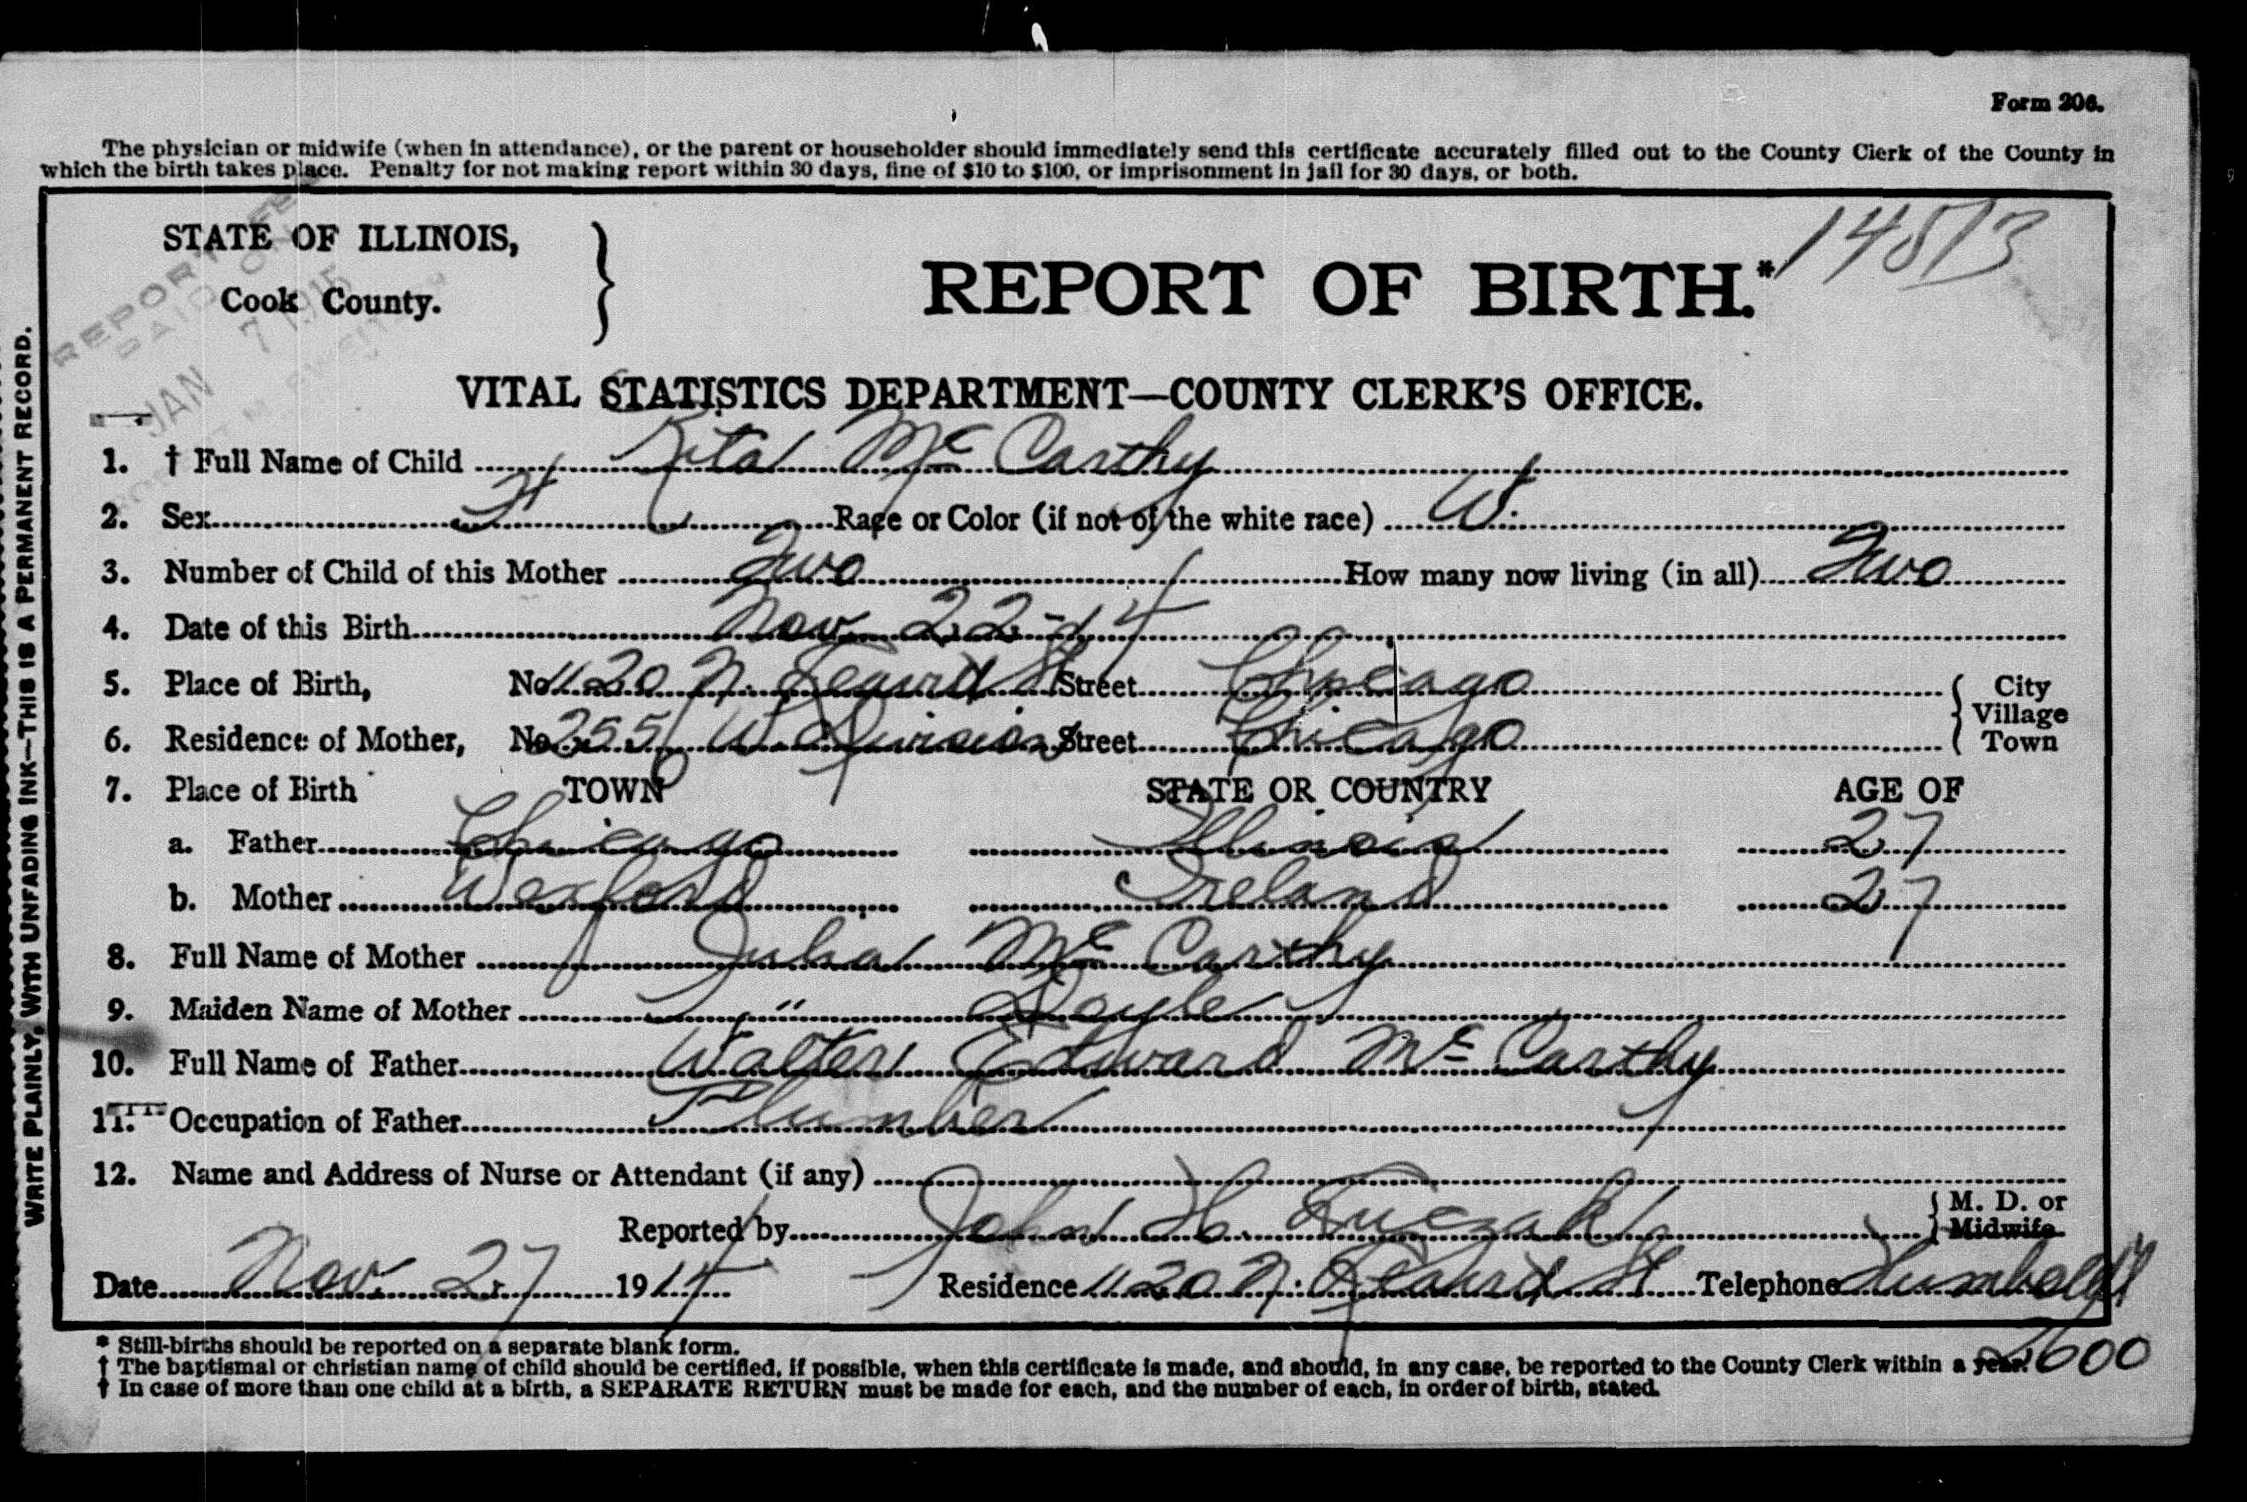 Form 206.
The physician or midwife (when in attendance), or the parent or householder should immediately send this certificate accurately filled out to the County Clerk of the County in
which the birth takes place. Penalty for not making report within 30 days, fine of $10 to $100, or imprisonment in jail for 30 days, or both.
STATE OF ILLINOIS,
Cook County.
REPORT OF BIRTH.*
JAN 7 1915
VITAL STATISTICS DEPARTMENT—COUNTY CLERK'S OFFICE.
1. † Full Name of Child Rita McCarthy
2. Sex F Race or Color (if not of the white race) W.
3. Number of Child of this Mother Two How many now living (in all) Two
4. Date of this Birth Nov. 22-14
5. Place of Birth, No. 1120 N. Leavitt St Street Chicago { City
6. Residence of Mother, No. 2551 W. Division Street Chicago Village
Town
7. Place of Birth TOWN STATE OR COUNTRY AGE OF
a. Father Chicago Illinois 27
b. Mother Wexford Ireland 27
8. Full Name of Mother Julia McCarthy
9. Maiden Name of Mother " Doyle
10. Full Name of Father Walter Edward McCarthy
11. Occupation of Father Plumber
12. Name and Address of Nurse or Attendant (if any)
Reported by John H. { M. D. or
Midwife.
Date Nov. 27 1914 Residence 1120 N. Leavitt St Telephone Humboldt
2600
* Still-births should be reported on a separate blank form.
† The baptismal or christian name of child should be certified, if possible, when this certificate is made, and should, in any case, be reported to the County Clerk within a year.
† In case of more than one child at a birth, a SEPARATE RETURN must be made for each, and the number of each, in order of birth, stated.
WRITE PLAINLY, WITH UNFADING INK—THIS IS A PERMANENT RECORD.